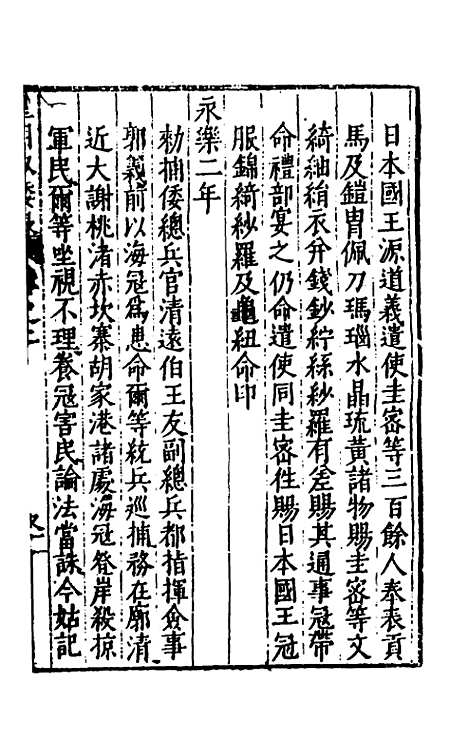 日本國王源道義遣使圭密等三百餘人奉表貢
馬及鎧冑佩刀瑪瑙水晶琉黃諸物賜圭密等文
綺紬絹衣并錢鈔紵絲紗羅有差賜其通事冠帶
命禮部宴之仍命遣使同圭密往賜日本國王冠
服錦綺紗羅及龜紐命印
永樂二年
勑捕倭總兵官清遠伯王友副總兵都指揮僉事
郭義前以海寇爲患命爾等統兵巡捕務在廓清
近大謝桃渚赤坎寨胡家港諸處海寇登岸殺掠
軍民爾等坐視不理養寇害民論法當誅今姑記